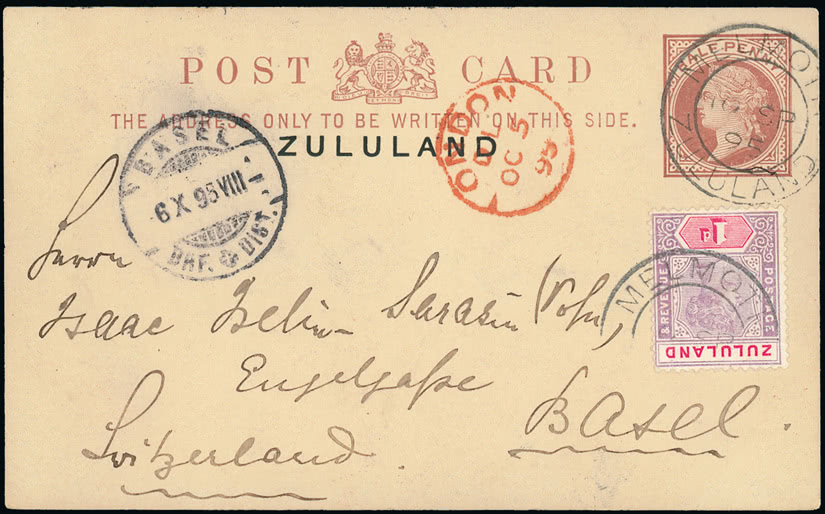 POST CARD
THE ADDRESS ONLY TO BE WRITTEN ON THIS SIDE.
ZULULAND
HALF PENNY
MELMOTH
ZULULAND
LONDON
OC 5
95
BASEL
6 X 95 VIII
BRF. & DIST.
1D
POSTAGE
& REVENUE
ZULULAND
MELMOTH
Herrn
Isaac Iselin-Sarasin (Sohn)
Engelgasse
Basel.
Switzerland.